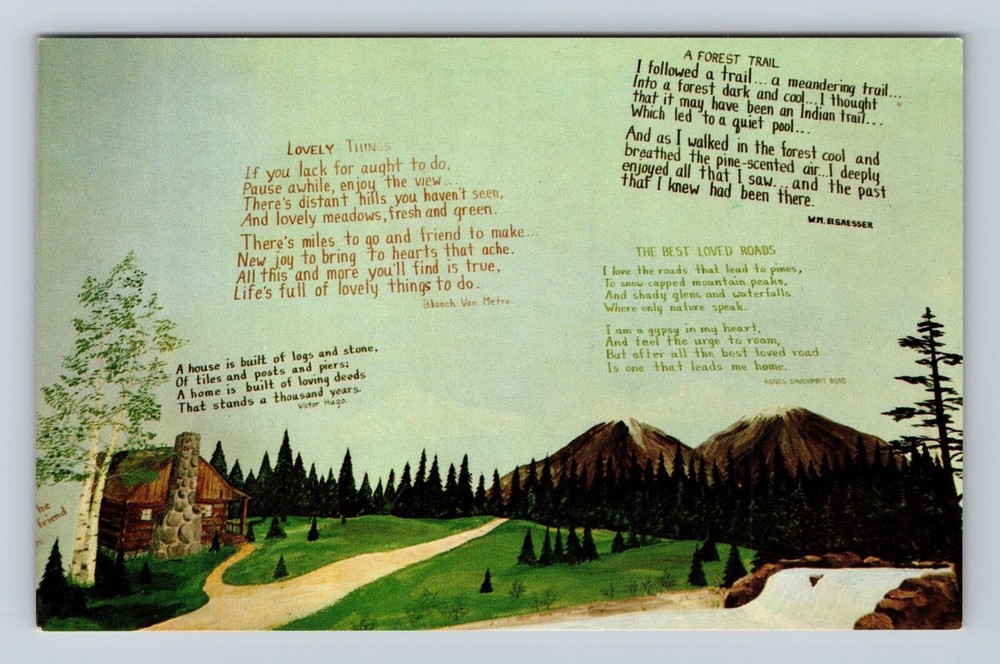 A FOREST TRAIL
I followed a trail... a meandering trail...
Into a forest dark and cool...I thought
that it may have been an Indian trail...
Which led to a quiet pool...
And as I walked in the forest cool and
breathed the pine-scented air...I deeply
enjoyed all that I saw...and the past
that I knew had been there.
WM. ELSAESSER
LOVELY THINGS
If you lack for aught to do,
Pause awhile, enjoy the view...
There's distant hills you haven't seen,
And lovely meadows, fresh and green.
There's miles to go and friend to make...
New joy to bring to hearts that ache.
All this and more you'll find is true,
Life's full of lovely things to do.
Blanch Van Metre
THE BEST LOVED ROADS
I love the roads that lead to pines,
To snow-capped mountain peaks,
And shady glens and waterfalls
Where only nature speak.
I am a gypsy in my heart,
And feel the urge to roam,
But after all the best loved road
Is one that leads me home.
AGNES DAVENPORT BOND
A house is built of logs and stone,
Of tiles and posts and piers;
A home is built of loving deeds
That stands a thousand years.
Victor Hugo.
he
friend